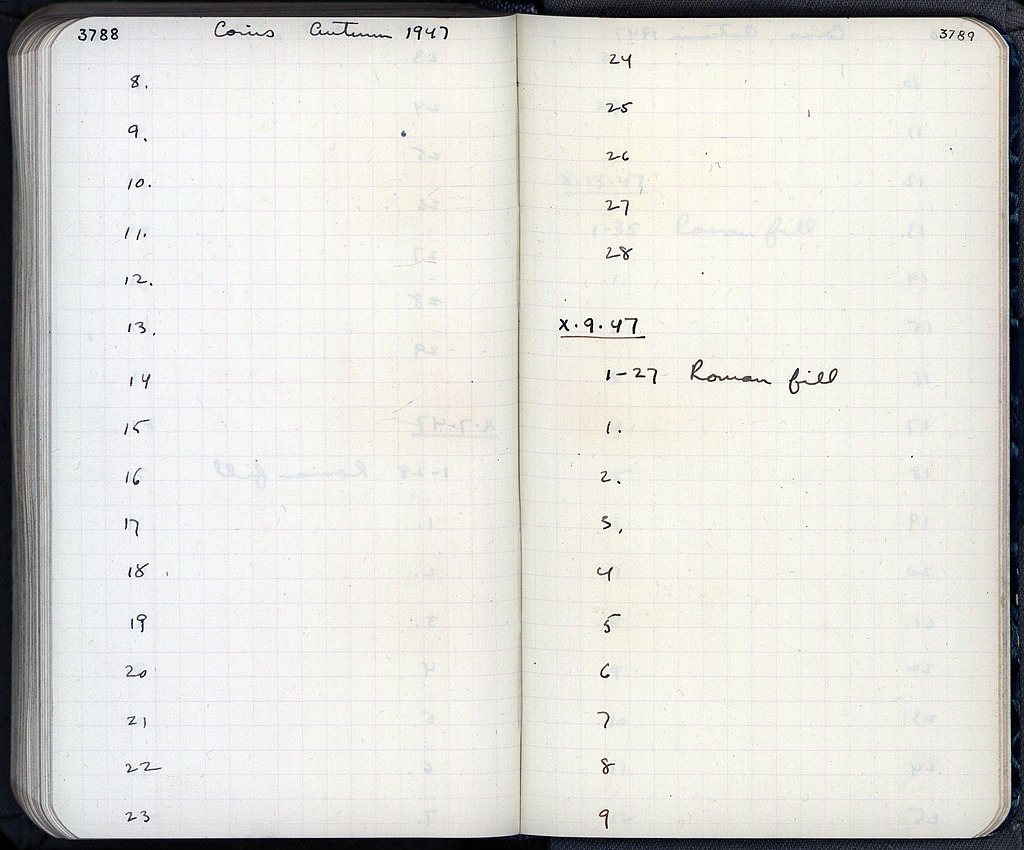 3788 Coins Autumn 1947
8.
9.
10.
11.
12.
13.
14
15
16
17
18
19
20
21
22
23
3789
24
25
26
27
28
X.9.47
1-27 Roman fill
1.
2.
3.
4
5
6
7
8
9